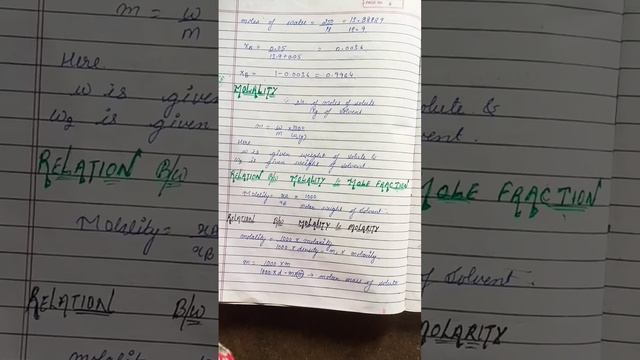 moles of water = 250/18 = 13.88889
18 13.9
xA = 0.05 = 0.0036
13.9+0.05
xB = 1-0.0036 = 0.9964
MOLALITY
: No of moles of solute
Kg of solvent
m = w x 1000
m w2(g)
Here
w is given weight of solute &
w2 is given weight of solvent
RELATION B/w MOLALITY & MOLE FRACTION
Molality = xA x 1000
xB molar weight of solvent.
RELATION B/w MOLALITY & MOLARITY
molality = 1000 x molarity
1000 x density - m2 x molarity
m = 1000 x m
1000 x d - m → molar mass of solute
m = w
m
Here
w is given
w2 is given
RELATION B/w
Molality = xA
xB
RELATION B/w
solute &
solvent.
MOLE FRACTION
of solvent.
MOLARITY